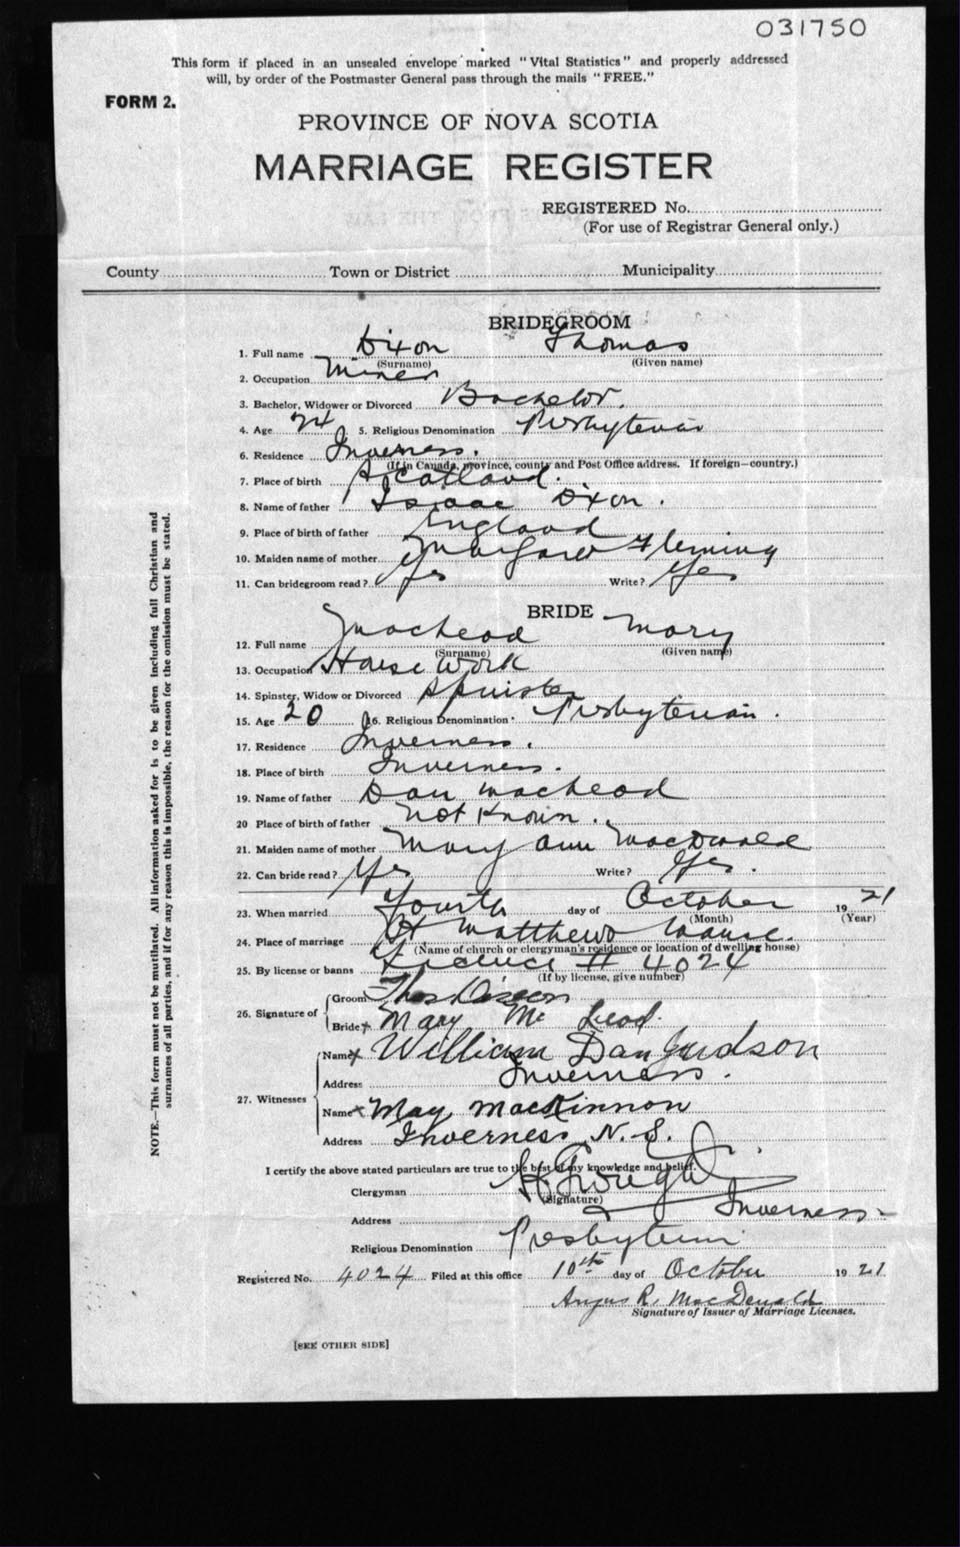 031750
This form if placed in an unsealed envelope marked "Vital Statistics" and properly addressed
will, by order of the Postmaster General pass through the mails "FREE."
FORM 2.
PROVINCE OF NOVA SCOTIA
MARRIAGE REGISTER
REGISTERED No.
(For use of Registrar General only.)
County Town or District Municipality
BRIDEGROOM
1. Full name Dixon Thomas
(Surname) (Given name)
2. Occupation Miner
3. Bachelor, Widower or Divorced Bachelor.
4. Age 24 5. Religious Denomination Presbyterian
6. Residence Inverness.
(If in Canada, province, county and Post Office address. If foreign—country.)
7. Place of birth Scotland.
8. Name of father Isaac Dixon.
9. Place of birth of father England
10. Maiden name of mother Margaret Fleming
11. Can bridegroom read? Yes Write? Yes
BRIDE
12. Full name MacLeod Mary
(Surname) (Given name)
13. Occupation House Work
14. Spinster, Widow or Divorced Spinster
15. Age 20 16. Religious Denomination Presbyterian.
17. Residence Inverness.
18. Place of birth Inverness.
19. Name of father Dan MacLeod
20 Place of birth of father Not Known.
21. Maiden name of mother Mary Ann MacDonald
22. Can bride read? Yes Write? Yes.
23. When married Fourth day of October 1921
(Month) (Year)
24. Place of marriage St Matthews Manse.
(Name of church or clergyman's residence or location of dwelling house)
25. By license or banns License # 4024
(If by license, give number)
26. Signature of Groom Thos Dixon
Bride x Mary Mc Leod.
27. Witnesses Name x William Dan Judson
Address Inverness.
Name x May MacKinnon
Address Inverness, N. S.
I certify the above stated particulars are true to the best of my knowledge and belief.
Clergyman
(Signature)
Address Inverness
Religious Denomination Presbyterian
Registered No. 4024 Filed at this office 10th day of October 1921
Angus R. MacDonald
Signature of Issuer of Marriage Licenses.
[SEE OTHER SIDE]
NOTE.—This form must not be mutilated. All information asked for is to be given including full Christian and
surnames of all parties, and if for any reason this is impossible, the reason for the omission must be stated.